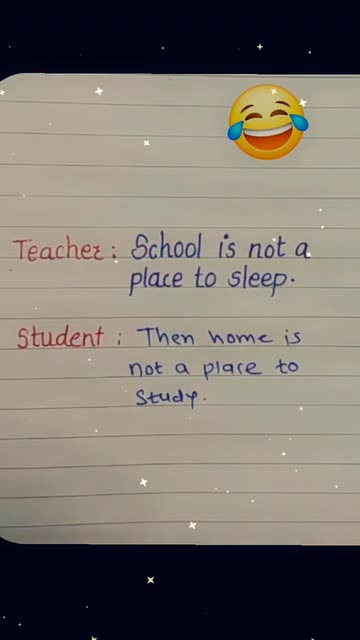 Teacher: School is not a
place to sleep.
Student: Then home is
not a place to
study.